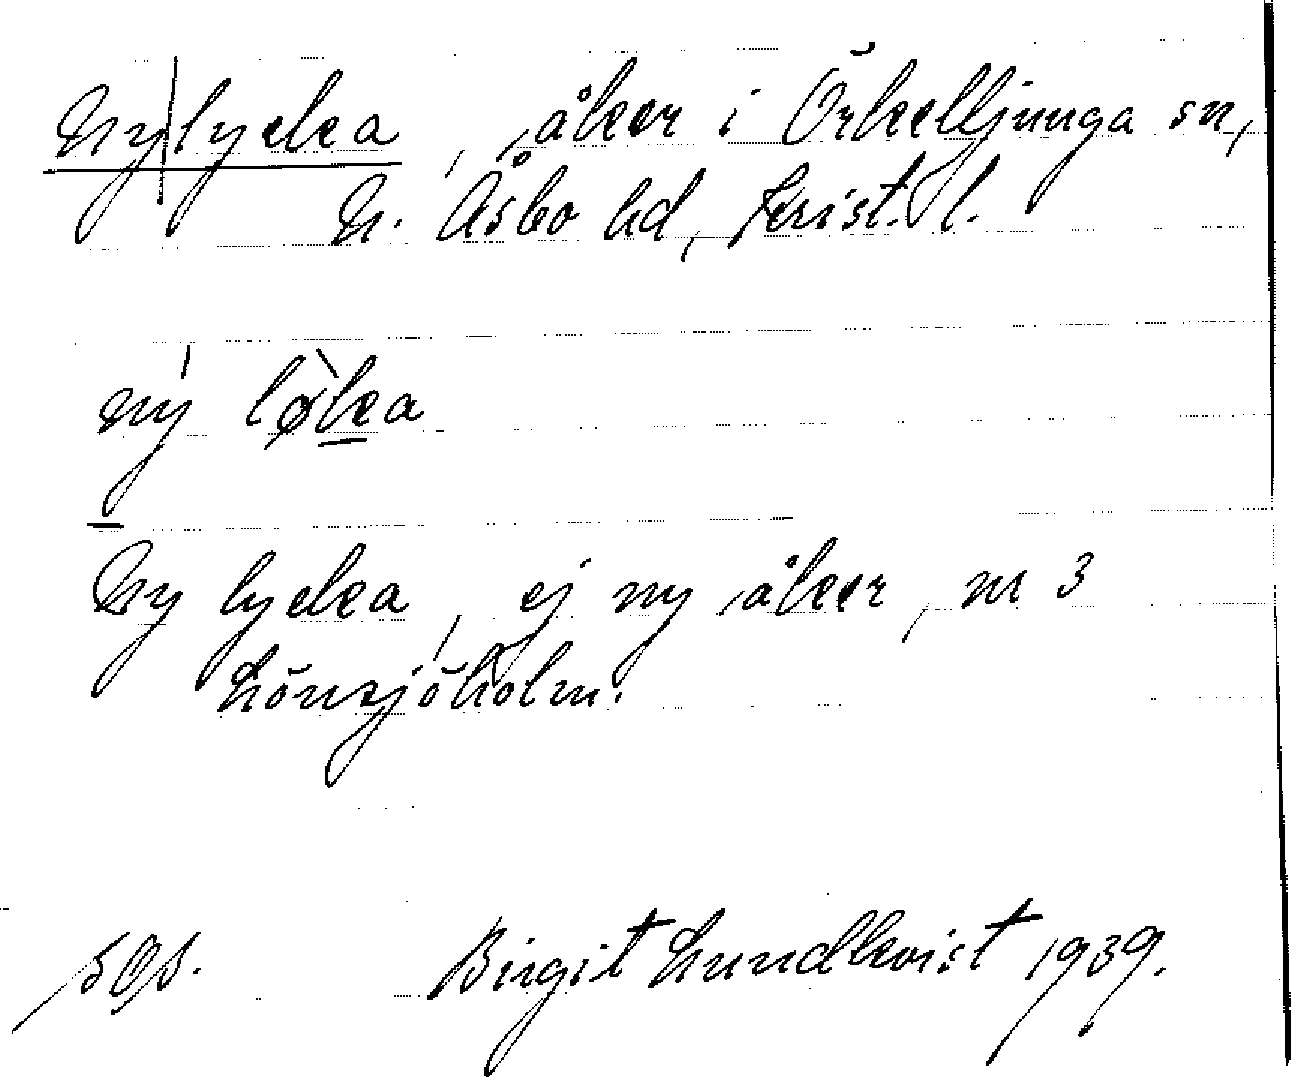 Ny|lycka, åker i Örkelljunga sn,
N. Åsbo hd, Krist. l.
ný lø̀ka
Ny lycka, ej ny åker, nr 3
Lönsjöholm.
Birgit Lundkvist 1939.